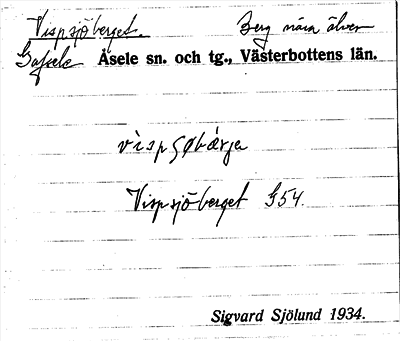 Vispsjöberget. Berg nära älven
Gafsele Åsele sn. och tg., Västerbottens län.
Vispsjöberget G54.
Sigvard Sjölund 1934.